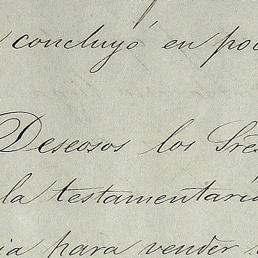 concluyó en po
Deseosos los Sres
la testamentaría
para vender